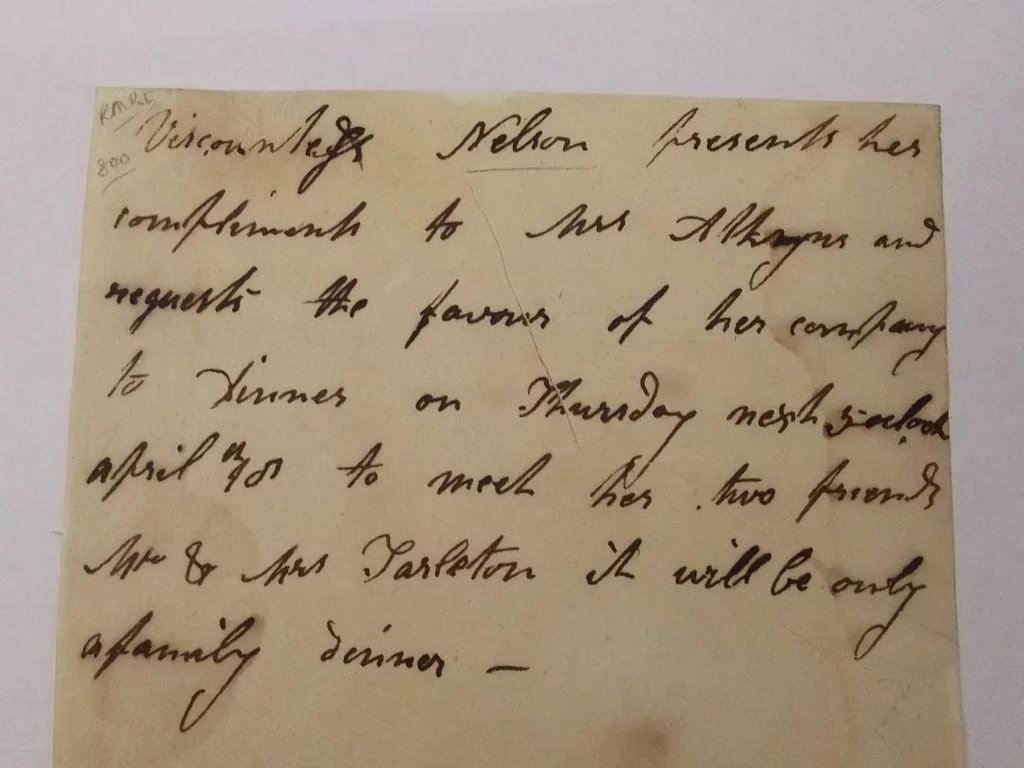 RARE
800
Viscountess Nelson presents her
compliments to Mrs and
requests the favour of her company
to Dinner on Thursday next 5 oclock
april to meet her two friends
Mr & Mrs Tarleton it will be only
a family dinner —